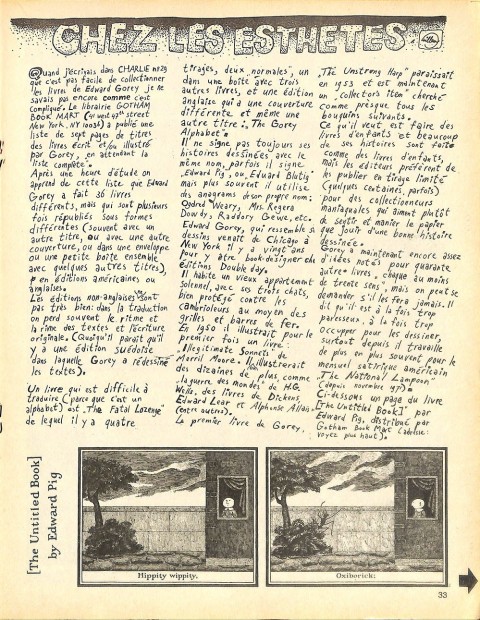 CHEZ LES ESTHETES
Quand j'écrivais dans CHARLIE nr 29
que c'est pas facile de collectionner
les livres de Edward Gorey je ne
savais pas encore comme c'est
compliqué. Le librairie GOTHAM
BOOK MART (41 west 47th street
New York, NY 10036) a publié une
liste de sept pages de titres
des livres écrit et/ou illustré
par Gorey, en attendant la
"liste complète".
Après une heure d'étude on
apprend de cette liste que Edward
Gorey a fait 36 livres
différents, mais qui sont plusieurs
fois républiés sous formes
différentes (souvent avec un
autre titre, ou avec une autre
couverture, ou dans une enveloppe
ou une petite boîte ensemble
avec quelques autres titres),
en éditions américaines ou
anglaises.
Les éditions non-anglaises sont
pas très bien: dans la traduction
on perd souvent le ritme et
la rime des textes et l'écriture
originale. (Quoiqu'il paraît qu'il
y a une édition suédoise
dans laquelle Gorey a rédessiné
les textes).
Un livre qui est difficile à
traduire (parce que c'est un
alphabet) est "The Fatal Lozenge"
de lequel il y a quatre
tirages, deux "normales", un
dans une boîte avec trois
autres livres, et une édition
anglaise qui a une couverture
différente et même une
autre titre: "The Gorey
Alphabet".
Il ne signe pas toujours ses
histoires dessinées avec le
même nom, parfois il signe
"Edward Pig", ou "Eduard Blutig"
mais plus souvent il utilise
des anagrams de son propre nom:
Ogdred Weary, Mrs. Regera
Dowdy, Raddory Gewe, etc.
Edward Gorey, qui ressemble à ses
dessins venait de Chicago à
New York il y a vingt ans
pour y être book-designer chez
Editions Double day.
Il habite un vieux appartement
solennel, avec ses trois chats,
bien protégé contre les
cambrioleurs au moyen des
grilles et barres de fer.
En 1950 il illustrait pour le
premier fois un livre:
"Illegitimate Sonnets" de
Merrill Moore. Il illustrerait
des dizaines de plus comme
"la guerre des mondes" de H.G.
Wells, des livres de Dickens,
Edward Lear et Alphonse Allais
(entre autres).
Le premier livre de Gorey,
"The Unstrung Harp" paraissait
en 1953 et est maintenant
un "collectors item" cherché
comme presque tous les
bouquins suivants.
Ce qu'il veut est faire des
livres d'enfants et beaucoup
de ses histoires sont faite
comme des livres d'enfants,
mais les éditeurs préfèrent de
les publier en tirage limité
(quelques centaines, parfois)
pour des collectionneurs
maniaquales qui aiment plutôt
de sentir et manier le papier
que jouir d'une bonne histoire
dessinée.
Gorey a maintenant encore assez
d'idées notés pour quarante
autre livres, "chaque au moins
de trente sens", mais on peut se
demander s'il les fera jamais. Il
dit qu'il est à la fois trop
paresseux, à la fois trop
occupper pour les dessiner,
surtout depuis il travaille
de plus en plus souvent pour le
mensuel satirique américain
"The National Lampoon"
(depuis novembre 1971).
Ci-dessous un page du livre
"[The Untitled Book]" par
Edward Pig, distribué par
Gotham Book Mart (adresse:
voyez plus haut).
[The Untitled Book]
by Edward Pig
Hippity wippity,
Oxiborick;
33